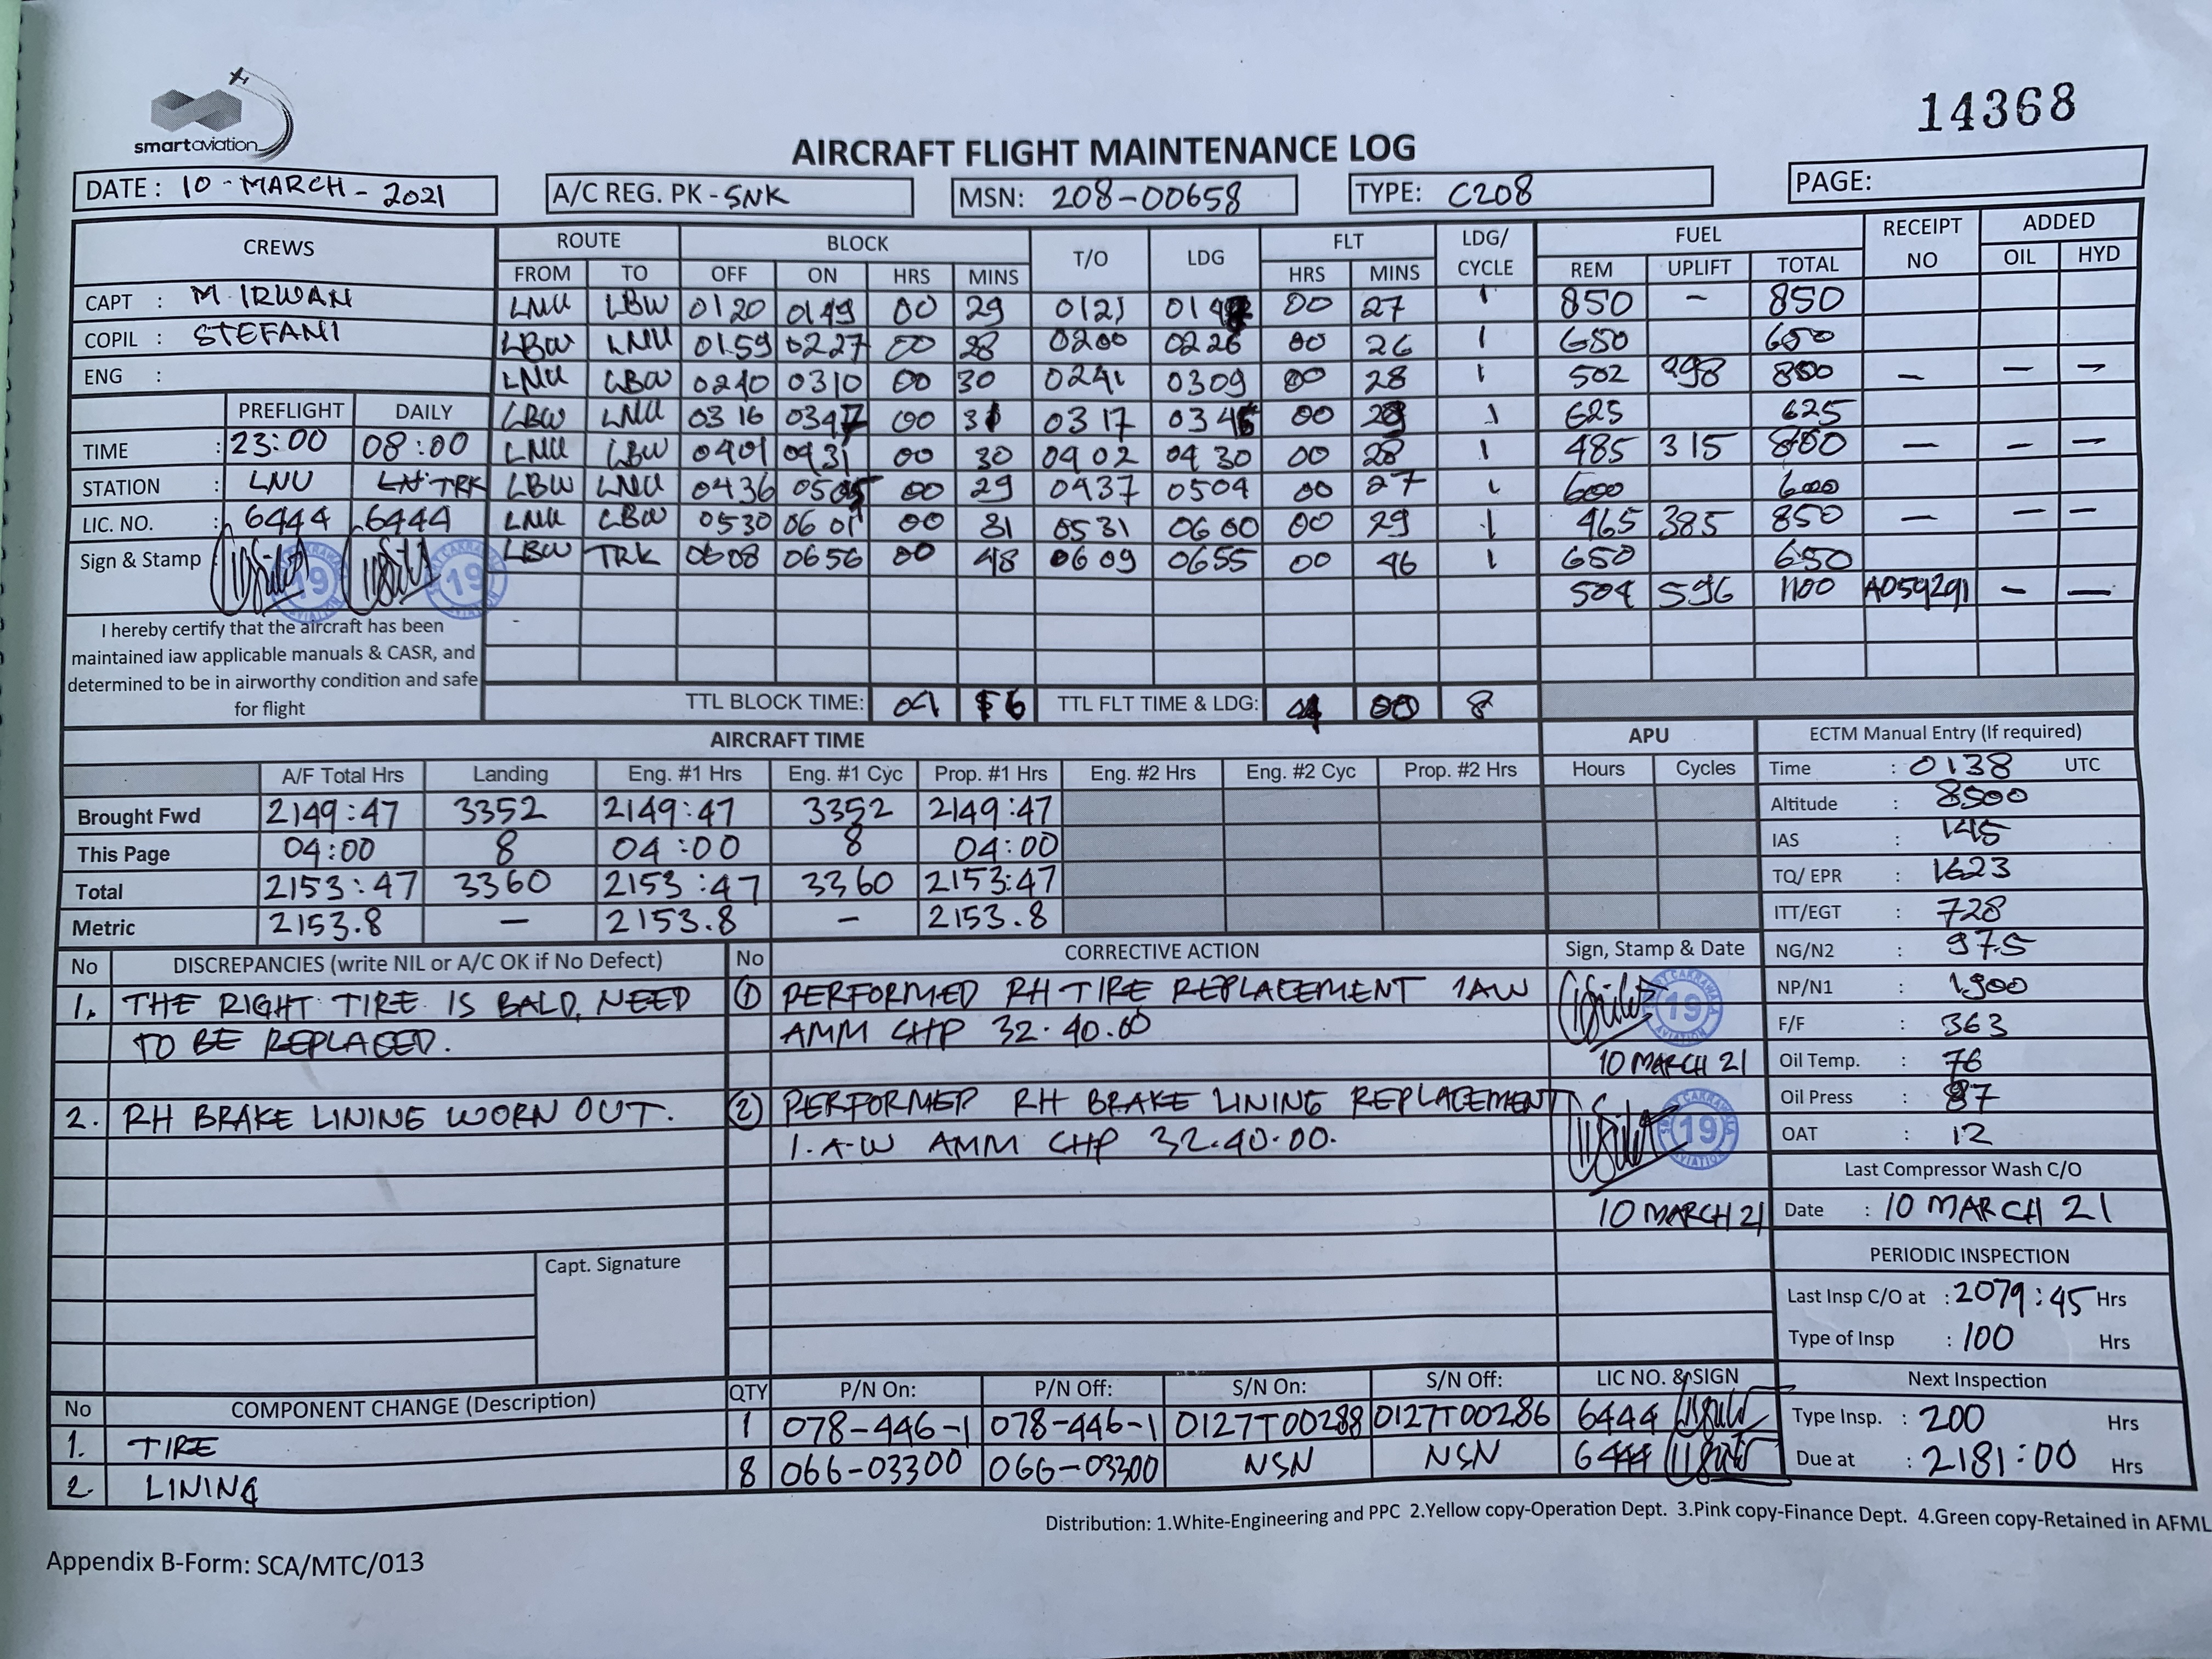 smartaviation
14368
AIRCRAFT FLIGHT MAINTENANCE LOG
DATE : 10 - MARCH - 2021 A/C REG. PK - SNK MSN: 208-00658 TYPE: C208 PAGE:
CREWS ROUTE BLOCK T/O LDG FLT LDG/ CYCLE FUEL RECEIPT NO ADDED
FROM TO OFF ON HRS MINS HRS MINS REM UPLIFT TOTAL OIL HYD
CAPT : M. IRWAN LNU LBW 0120 0149 00 29 0121 00 27 1 850 - 850
COPIL : STEFANI LBW LNU 0159 0227 00 28 0200 0226 00 26 1 650 650
ENG : LNU LBW 0240 0310 00 30 0241 0309 00 28 1 502 298 800 - - -
PREFLIGHT DAILY LBW LNU 0316 0347 00 31 0317 0345 00 28 1 625 625
TIME : 23:00 08:00 LNU LBW 0401 0431 00 30 0402 0430 00 28 1 485 315 800 - - -
STATION : LNU TRK LBW LNU 0436 0505 00 29 0437 0504 00 27 1 600 600
LIC. NO. : 6444 6444 LNU LBW 0530 0601 00 31 0531 0600 00 29 1 465 385 850 - - -
Sign & Stamp LBW TRK 0608 0656 00 48 0609 0655 00 46 1 650 650
19 19 504 596 1100 A059291 - -
I hereby certify that the aircraft has been
maintained iaw applicable manuals & CASR, and
determined to be in airworthy condition and safe
for flight
TTL BLOCK TIME: 04 16 TTL FLT TIME & LDG: 4 00 8
AIRCRAFT TIME APU ECTM Manual Entry (If required)
A/F Total Hrs Landing Eng. #1 Hrs Eng. #1 Cyc Prop. #1 Hrs Eng. #2 Hrs Eng. #2 Cyc Prop. #2 Hrs Hours Cycles Time : 0138 UTC
Brought Fwd 2149:47 3352 2149:47 3352 2149:47 Altitude : 8500
This Page 04:00 8 04:00 8 04:00 IAS : 145
Total 2153:47 3360 2153:47 3360 2153:47 TQ/ EPR : 1623
Metric 2153.8 - 2153.8 - 2153.8 ITT/EGT : 728
No DISCREPANCIES (write NIL or A/C OK if No Defect) No CORRECTIVE ACTION Sign, Stamp & Date NG/N2 : 97.5
1. THE RIGHT TIRE IS BALD, NEED ① PERFORMED RH TIRE REPLACEMENT IAW 19 NP/N1 : 1900
TO BE REPLACED. AMM CHP 32.40.00 F/F : 363
10 MARCH 21 Oil Temp. : 76
2. RH BRAKE LINING WORN OUT. ② PERFORMED RH BRAKE LINING REPLACEMENT Oil Press : 87
I.A.W AMM CHP 32.40.00. 19 OAT : 12
Last Compressor Wash C/O
10 MARCH 21 Date : 10 MARCH 21
PERIODIC INSPECTION
Capt. Signature
Last Insp C/O at : 2079:45 Hrs
Type of Insp : 100 Hrs
No COMPONENT CHANGE (Description) QTY P/N On: P/N Off: S/N On: S/N Off: LIC NO. & SIGN Next Inspection
1. TIRE 1 078-446-1 078-446-1 0127T00288 0127T00286 6444 Type Insp. : 200 Hrs
2. LINING 8 066-03300 066-03300 NSN NSN 6444 Due at : 2181:00 Hrs
Distribution: 1.White-Engineering and PPC 2.Yellow copy-Operation Dept. 3.Pink copy-Finance Dept. 4.Green copy-Retained in AFML
Appendix B-Form: SCA/MTC/013